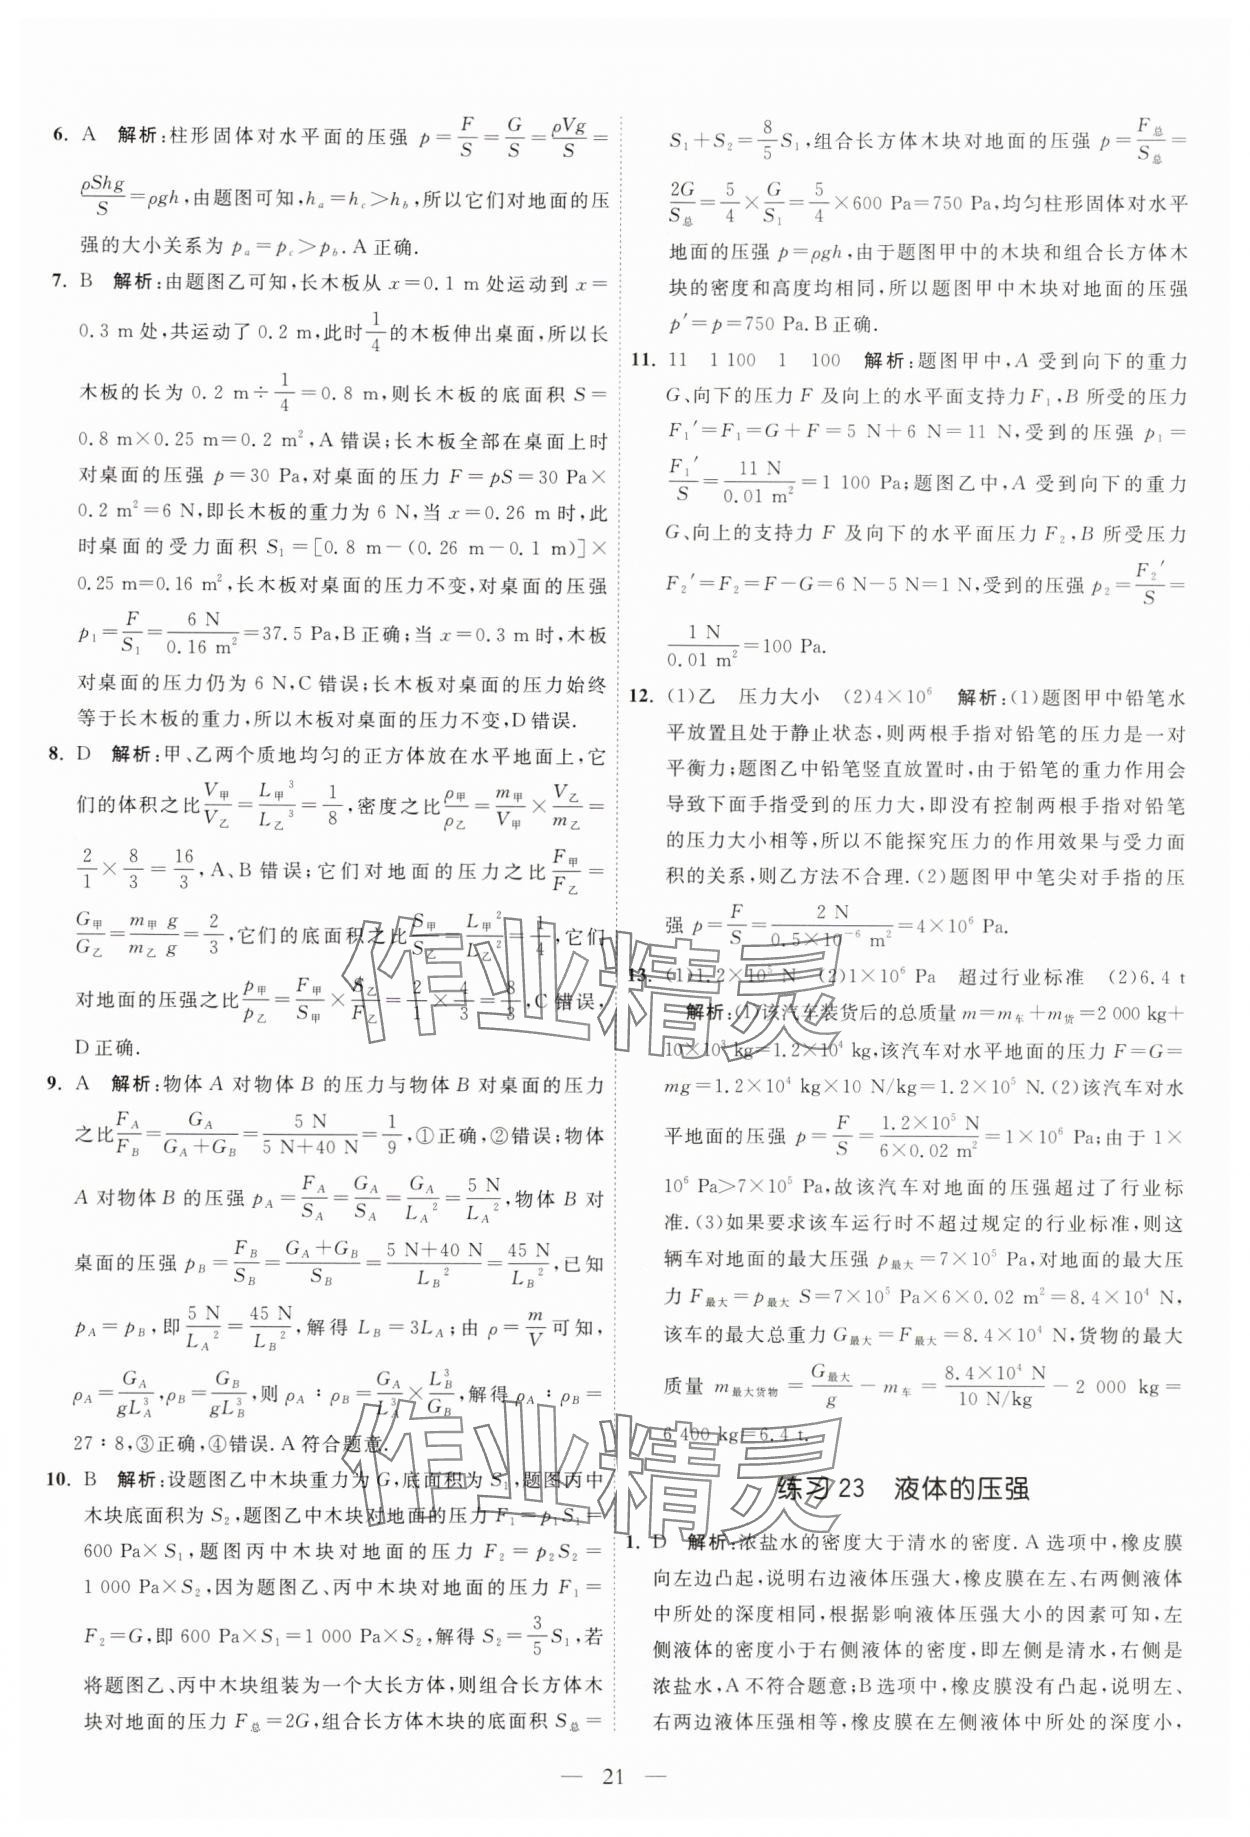 6. A 解析:柱形固体对水平面的压强 p=F/S=G/S=ρVg/S=
ρShg/S=ρgh,由题图可知,hₐ=h_c>h_b,所以它们对地面的压
强的大小关系为 pₐ=p_c>p_b.A 正确.
7. B 解析:由题图乙可知,长木板从 x=0.1 m处运动到 x=
0.3 m处,共运动了 0.2 m,此时1/4的木板伸出桌面,所以长
木板的长为 0.2 m÷1/4=0.8 m,则长木板的底面积 S=
0.8 m×0.25 m=0.2 m²,A 错误;长木板全部在桌面上时
对桌面的压强 p=30 Pa,对桌面的压力 F=pS=30 Pa×
0.2 m²=6 N,即长木板的重力为 6 N,当 x=0.26 m时,此
时桌面的受力面积 S₁=[0.8 m-(0.26 m-0.1 m)]×
0.25 m=0.16 m²,长木板对桌面的压力不变,对桌面的压强
p₁=F/S₁=6 N/0.16 m²=37.5 Pa,B 正确;当 x=0.3 m时,木板
对桌面的压力仍为 6 N,C 错误;长木板对桌面的压力始终
等于长木板的重力,所以木板对桌面的压力不变,D 错误.
8. D 解析:甲、乙两个质地均匀的正方体放在水平地面上,它
们的体积之比V甲/V乙=L甲³/L乙³=1/8,密度之比ρ甲/ρ乙=m甲/V甲×V乙/m乙=
2/1×8/3=16/3,A、B 错误;它们对地面的压力之比F甲/F乙=
G甲/G乙=m甲g/m乙g=2/3,它们的底面积之比S甲/S乙=L甲²/L乙²=1/4,它们
对地面的压强之比p甲/p乙=F甲/S甲×S乙/F乙=2/1×4/3=8/3,C 错误,
D 正确.
9. A 解析:物体 A 对物体 B 的压力与物体 B 对桌面的压力
之比F_A/F_B=G_A/(G_A+G_B)=5 N/(5 N+40 N)=1/9,①正确,②错误;物体
A 对物体 B 的压强 p_A=F_A/S_A=G_A/S_A=G_A/L_A²=5 N/L_A²,物体 B 对
桌面的压强 p_B=F_B/S_B=(G_A+G_B)/S_B=(5 N+40 N)/L_B²=45 N/L_B²,已知
p_A=p_B,即5 N/L_A²=45 N/L_B²,解得 L_B=3L_A;由 ρ=m/V可知,
ρ_A=G_A/gL_A³,ρ_B=G_B/gL_B³,则 ρ_A∶ρ_B=G_A/L_A³×L_B³/G_B,解得 ρ_A∶ρ_B=
27∶8,③正确,④错误.A 符合题意.
10. B 解析:设题图乙中木块重力为 G,底面积为 S₁,题图丙中
木块底面积为 S₂,题图乙中木块对地面的压力 F₁=p₁S₁=
600 Pa×S₁,题图丙中木块对地面的压力 F₂=p₂S₂=
1 000 Pa×S₂,因为题图乙、丙中木块对地面的压力 F₁=
F₂=G,即 600 Pa×S₁=1 000 Pa×S₂,解得 S₂=3/5S₁,若
将题图乙、丙中木块组装为一个大长方体,则组合长方体木
块对地面的压力 F总=2G,组合长方体木块的底面积 S总=
S₁+S₂=8/5S₁,组合长方体木块对地面的压强 p=F总/S总=
2G/S总=5/4×G/S₁=5/4×600 Pa=750 Pa,均匀柱形固体对水平
地面的压强 p=ρgh,由于题图甲中的木块和组合长方体木
块的密度和高度均相同,所以题图甲中木块对地面的压强
p′=p=750 Pa.B 正确.
11. 11 1 100 1 100 解析:题图甲中,A 受到向下的重力
G、向下的压力 F 及向上的水平面支持力 F₁,B 所受的压力
F₁′=F₁=G+F=5 N+6 N=11 N,所受的压强 p₁=
F₁′/S=11 N/0.01 m²=1 100 Pa;题图乙中,A 受到向下的重力
G、向上的支持力 F 及向下的水平面压力 F₂,B 所受压力
F₂′=F₂=F-G=6 N-5 N=1 N,受到的压强 p₂=F₂′/S=
1 N/0.01 m²=100 Pa.
12. (1)乙 压力大小 (2)4×10⁶ 解析:(1)题图甲中铅笔水
平放置且处于静止状态,则两根手指对铅笔的压力是一对
平衡力;题图乙中铅笔竖直放置时,由于铅笔的重力作用会
导致下面手指受到的压力大,即没有控制两根手指对铅笔
的压力大小相等,所以不能探究压力的作用效果与受力面
积的关系,则乙方法不合理.(2)题图甲中笔尖对手指的压
强 p=F/S=2 N/0.5×10⁻⁶ m²=4×10⁶ Pa.
13. (1)1.2×10⁵ N (2)1×10⁶ Pa 超过行业标准 (2)6.4 t
解析:(1)该汽车装货后的总质量 m=m车+m货=2 000 kg+
10×10³ kg=1.2×10⁴ kg,该汽车对水平地面的压力 F=G=
mg=1.2×10⁴ kg×10 N/kg=1.2×10⁵ N.(2)该汽车对水
平地面的压强 p=F/S=1.2×10⁵ N/6×0.02 m²=1×10⁶ Pa;由于 1×
10⁶ Pa>7×10⁵ Pa,故该汽车对地面的压强超过了行业标
准.(3)如果要求该车运行时不超过规定的行业标准,则这
辆车对地面的最大压强 p最大=7×10⁵ Pa,对地面的最大压
力 F最大=p最大 S=7×10⁵ Pa×6×0.02 m²=8.4×10⁴ N,
该车的最大总重力 G最大=F最大=8.4×10⁴ N,货物的最大
质量 m最大货物=G最大/g-m车=8.4×10⁴ N/10 N/kg-2 000 kg=
6 400 kg=6.4 t.
练习 23 液体的压强
1. D 解析:浓盐水的密度大于清水的密度.A 选项中,橡皮膜
向左边凸起,说明右边液体压强大,橡皮膜在左、右两侧液体
中所处的深度相同,根据影响液体压强大小的因素可知,左
侧液体的密度小于右侧液体的密度,即左侧是清水,右侧是
浓盐水,A 不符合题意;B 选项中,橡皮膜没有凸起,说明左、
右两边液体压强相等,橡皮膜在左侧液体中所处的深度小,
— 21 —
作业精灵
作业精灵